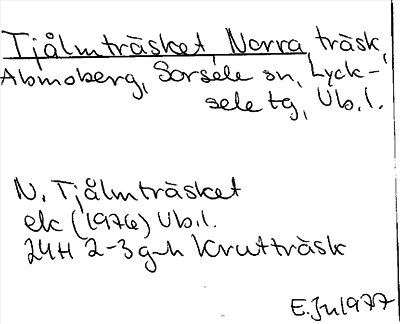 Tjålmträsket, Norra, träsk,
Abmoberg, Sorsele sn, Lyck-
sele tg, Vb.l.
N. Tjålmträsket
ek (1976) Vb.l.
24H 2-3 g-h Krutträsk
E.Ju 1977